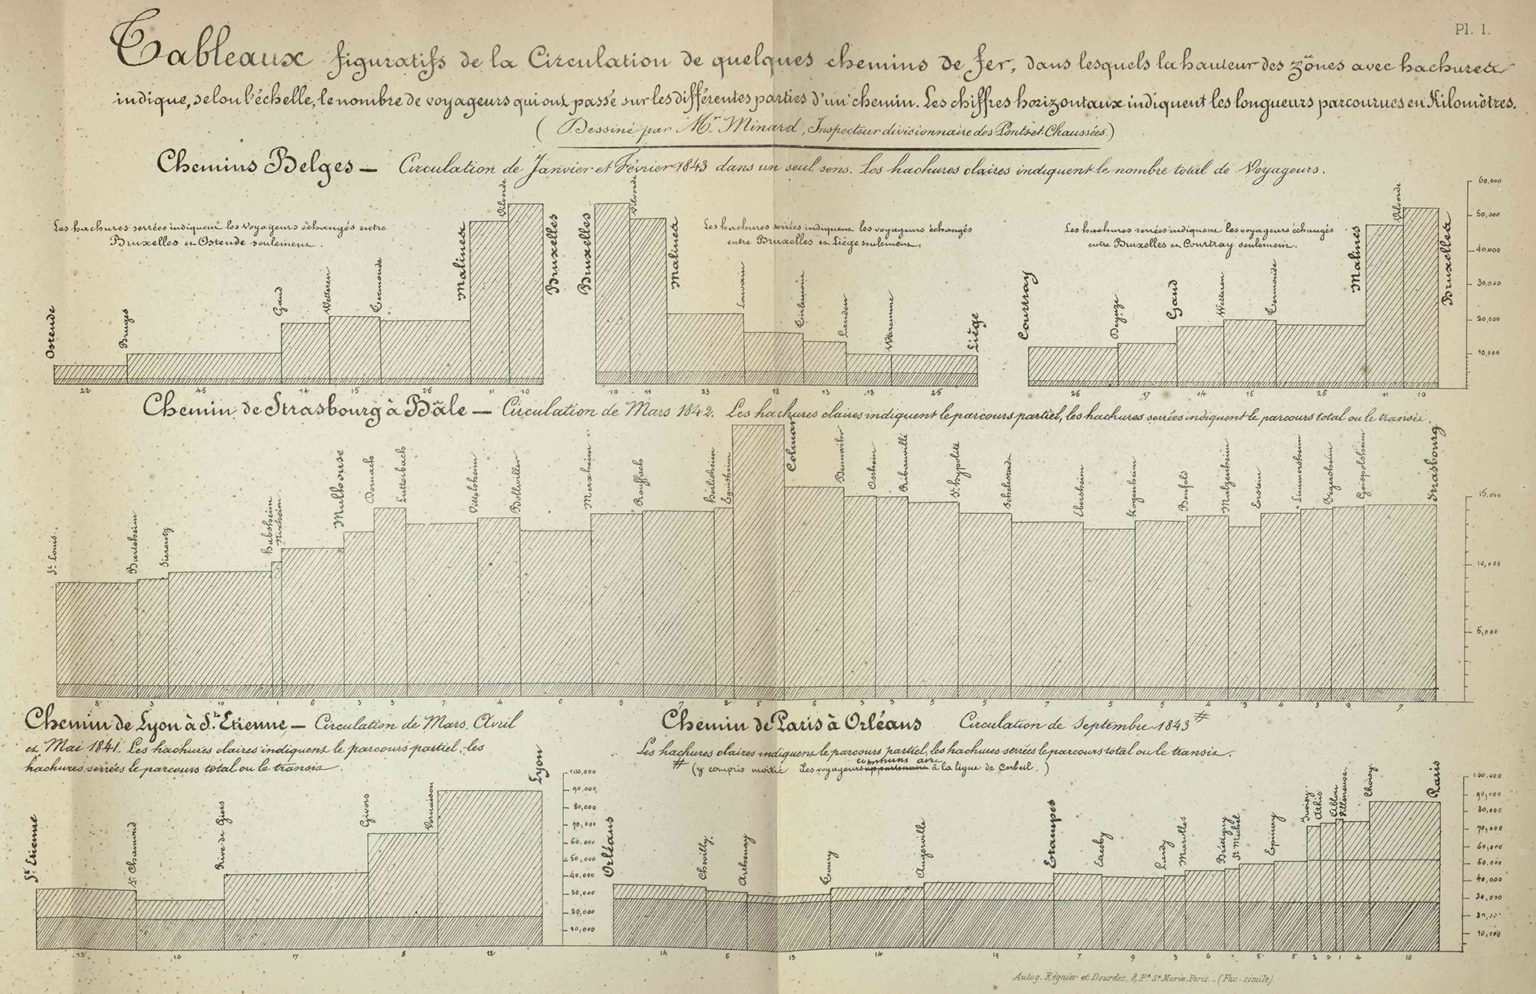 Pl. I.
Tableaux figuratifs de la Circulation de quelques chemins de fer, dans lesquels la hauteur des zônes avec hachures
indique, selon l'échelle, le nombre de voyageurs qui ont passé sur les différentes parties d'un chemin. Les chiffres horizontaux indiquent les longueurs parcourues en Kilomètres.
(Dessiné par Mr. Minard, Inspecteur divisionnaire des Ponts et Chaussées)
Chemins Belges — Circulation de Janvier et Février 1843 dans un seul sens. Les hachures claires indiquent le nombre total de Voyageurs.
Les hachures serrées indiquent les voyageurs échangés entre
Bruxelles et Ostende seulement.
Ostende
Bruges
Gand
Wetteren
Termonde
Malines
Vilvorde
Bruxelles
22 45 14 15 26 11 10
Les hachures serrées indiquent les voyageurs échangés
entre Bruxelles et Liège seulement.
Bruxelles
Vilvorde
Malines
Louvain
Tirlemont
Landen
Waremme
Liège
10 11 23 18 13 13 25
Les hachures serrées indiquent les voyageurs échangés
entre Bruxelles et Courtray seulement.
Courtray
Deynze
Gand
Wetteren
Termonde
Malines
Vilvorde
Bruxelles
26 17 14 15 26 11 10
60,000
50,000
40,000
30,000
20,000
10,000
Chemin de Strasbourg à Bâle — Circulation de Mars 1842. Les hachures claires indiquent le parcours partiel, les hachures serrées indiquent le parcours total ou le transit.
St. Louis
Bartenheim
Sierentz
Habsheim
Rixheim
Mulhouse
Dornach
Lutterbach
Bollwiller
Merxheim
Rouffach
Eguisheim
Colmar
Bennwihr
Ostheim
Ribeauvillé
St. hyppolite
Schelestadt
Ebersheim
Kogenheim
Benfeld
Matzenheim
Erstein
Limmersheim
Fegersheim
Geispolsheim
Strasbourg
15,000
10,000
5,000
Chemin de Lyon à St. Etienne — Circulation de Mars, Avril
et Mai 1841. Les hachures claires indiquent le parcours partiel, les
hachures serrées le parcours total ou le transit.
St. Etienne
St. Chamond
Rive de Giers
Givors
Vernaison
Lyon
12 10 17 8 12
100,000
90,000
80,000
70,000
60,000
50,000
40,000
30,000
20,000
10,000
Chemin de Paris à Orléans Circulation de Septembre 1843 #
Les hachures claires indiquent le parcours partiel, les hachures serrées le parcours total ou le transit.
# (y compris moitié des voyageurs communs avec à la ligne de Corbeil.)
Orléans
Chevilly
Arthenay
Toury
Angerville
Etampes
Etrechy
Lardy
Marolles
Brétigny
St Michel
Epinay
Juvisy
Athis
Ablon
Villeneuve
Choisy
Paris
14 6 13 14 19 7 9 3 6
100,000
90,000
80,000
70,000
60,000
50,000
40,000
30,000
20,000
10,000
Autog. Régnier et Dourdet, 8, Pge. Ste. Marie, Paris. _ (Fac-simile)